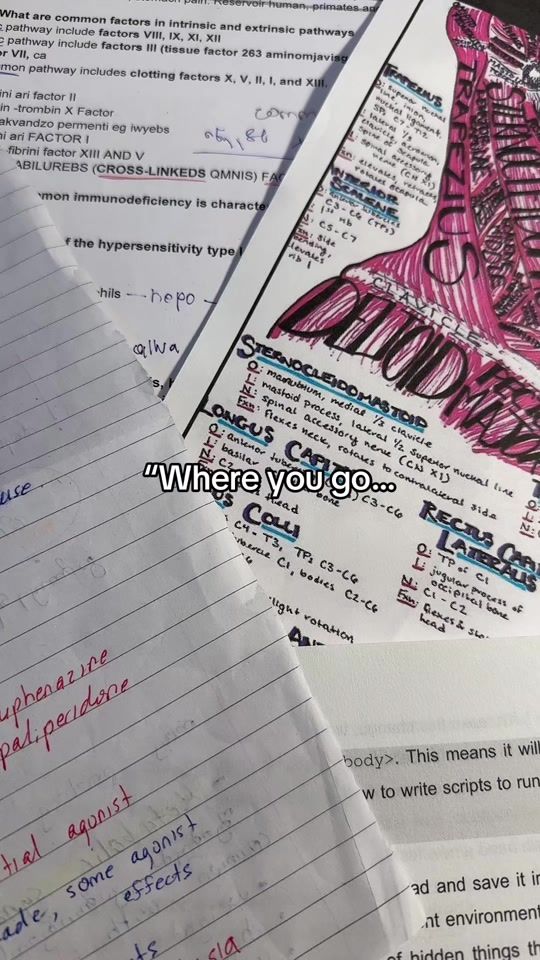 What are common factors in intrinsic and extrinsic pathways
pathway include factors VIII, IX, XI, XII
pathway include factors III (tissue factor 263 aminomjavisg
or VII, ca
mon pathway includes clotting factors X, V, II, I, and XIII,
ini ari factor II
in -trombin X Factor
akvandzo permenti eg iwyebs
ni ari FACTOR I
fibrini factor XIII AND V
ABILUREBS (CROSS-LINKEDS QMNIS) FA
mon immunodeficiency is characte
f the hypersensitivity type I
hils
TRAPEZIUS
O: superior nuchal
line, inion,
nuchal ligament,
SPs C7-T12
L: lateral 1/3
clavicle, acromion,
spine of scapula
N: spinal accessory
nerve (CN XI)
TRAPEZIUS
SCALENE
C3-C6 (TPs)
1st rib
N: C5-C7
Fxn: side
bending,
elevates
rib 1
CLAVICLE
DELTOID
STERNOCLEIDOMASTOID
O: manubrium, medial 1/3 clavicle
L: mastoid process, lateral 1/2 superior nuchal line
N: spinal accessory nerve (CN XI)
Fxn: flexes neck, rotates to contralateral side
LONGUS CAPITIS
O: anterior tubercle C3-C6
L: basilar bone
head
"Where you go...
COLLI
C4-T3, TPs C3-C6
tubercle C1, bodies C2-C6
light rotation
RECTUS CAP
LATERALIS
O: TP of C1
L: jugular process of
occipital bone
N: C1-C2
Fxn: flexes &
head
use.
uphenazine
paliperidone
tial agonist
ade, some agonist
effects
body>. This means it will
w to write scripts to run
ad and save it in
nt environment
of hidden things th